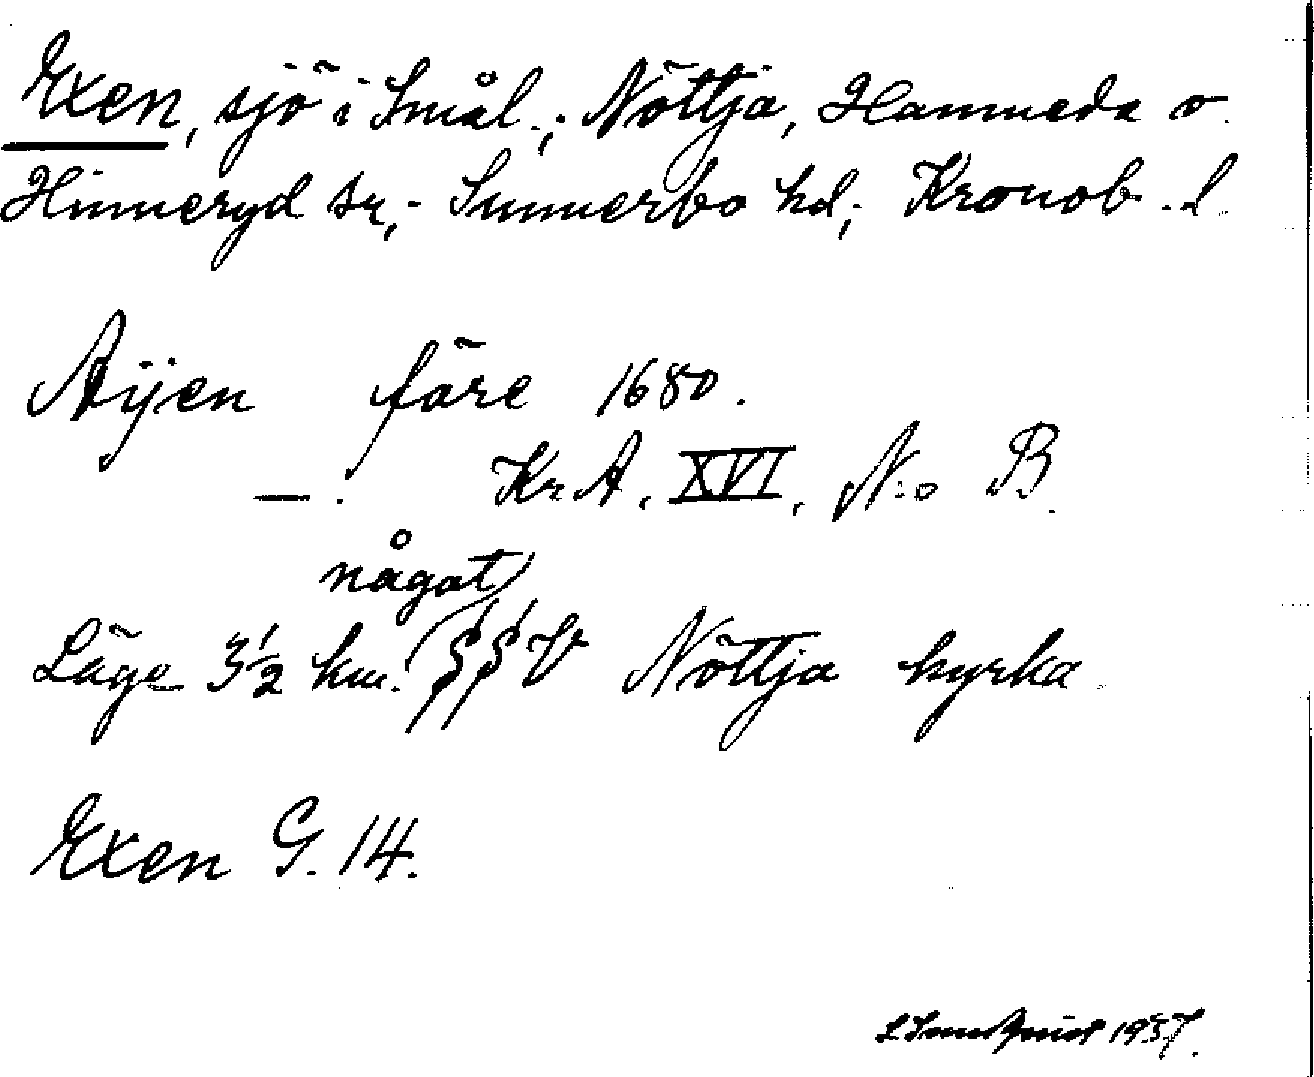 Exen, sjö i Smål.; Nöttja, Hamneda o.
Hinneryd sr,; Sunnerbo hd; Kronob. l.
Äijen före 1680.
—. KrA. XVI, N:o B.
något
Läge 3½ km. SSV Nöttja kyrka
Exen G. 14.
1937.